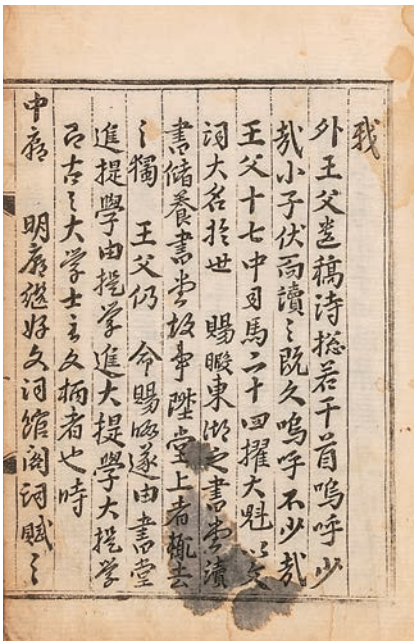 我
外王父遺稿詩揔若干首嗚呼少
㢤小子伏而讀之既久嗚呼不少㢤
王父十七中司馬二十四擢大魁以文
詞大名於世 賜暇東湖之書堂讀
書儲養書堂故事陞堂上者輒去
之獨 王父仍 命賜暇遂由書堂
進提學由提学進大提學大提学
即古之大学士主文柄者也時
中廟 明廟継好文詞舘阁詞賦之